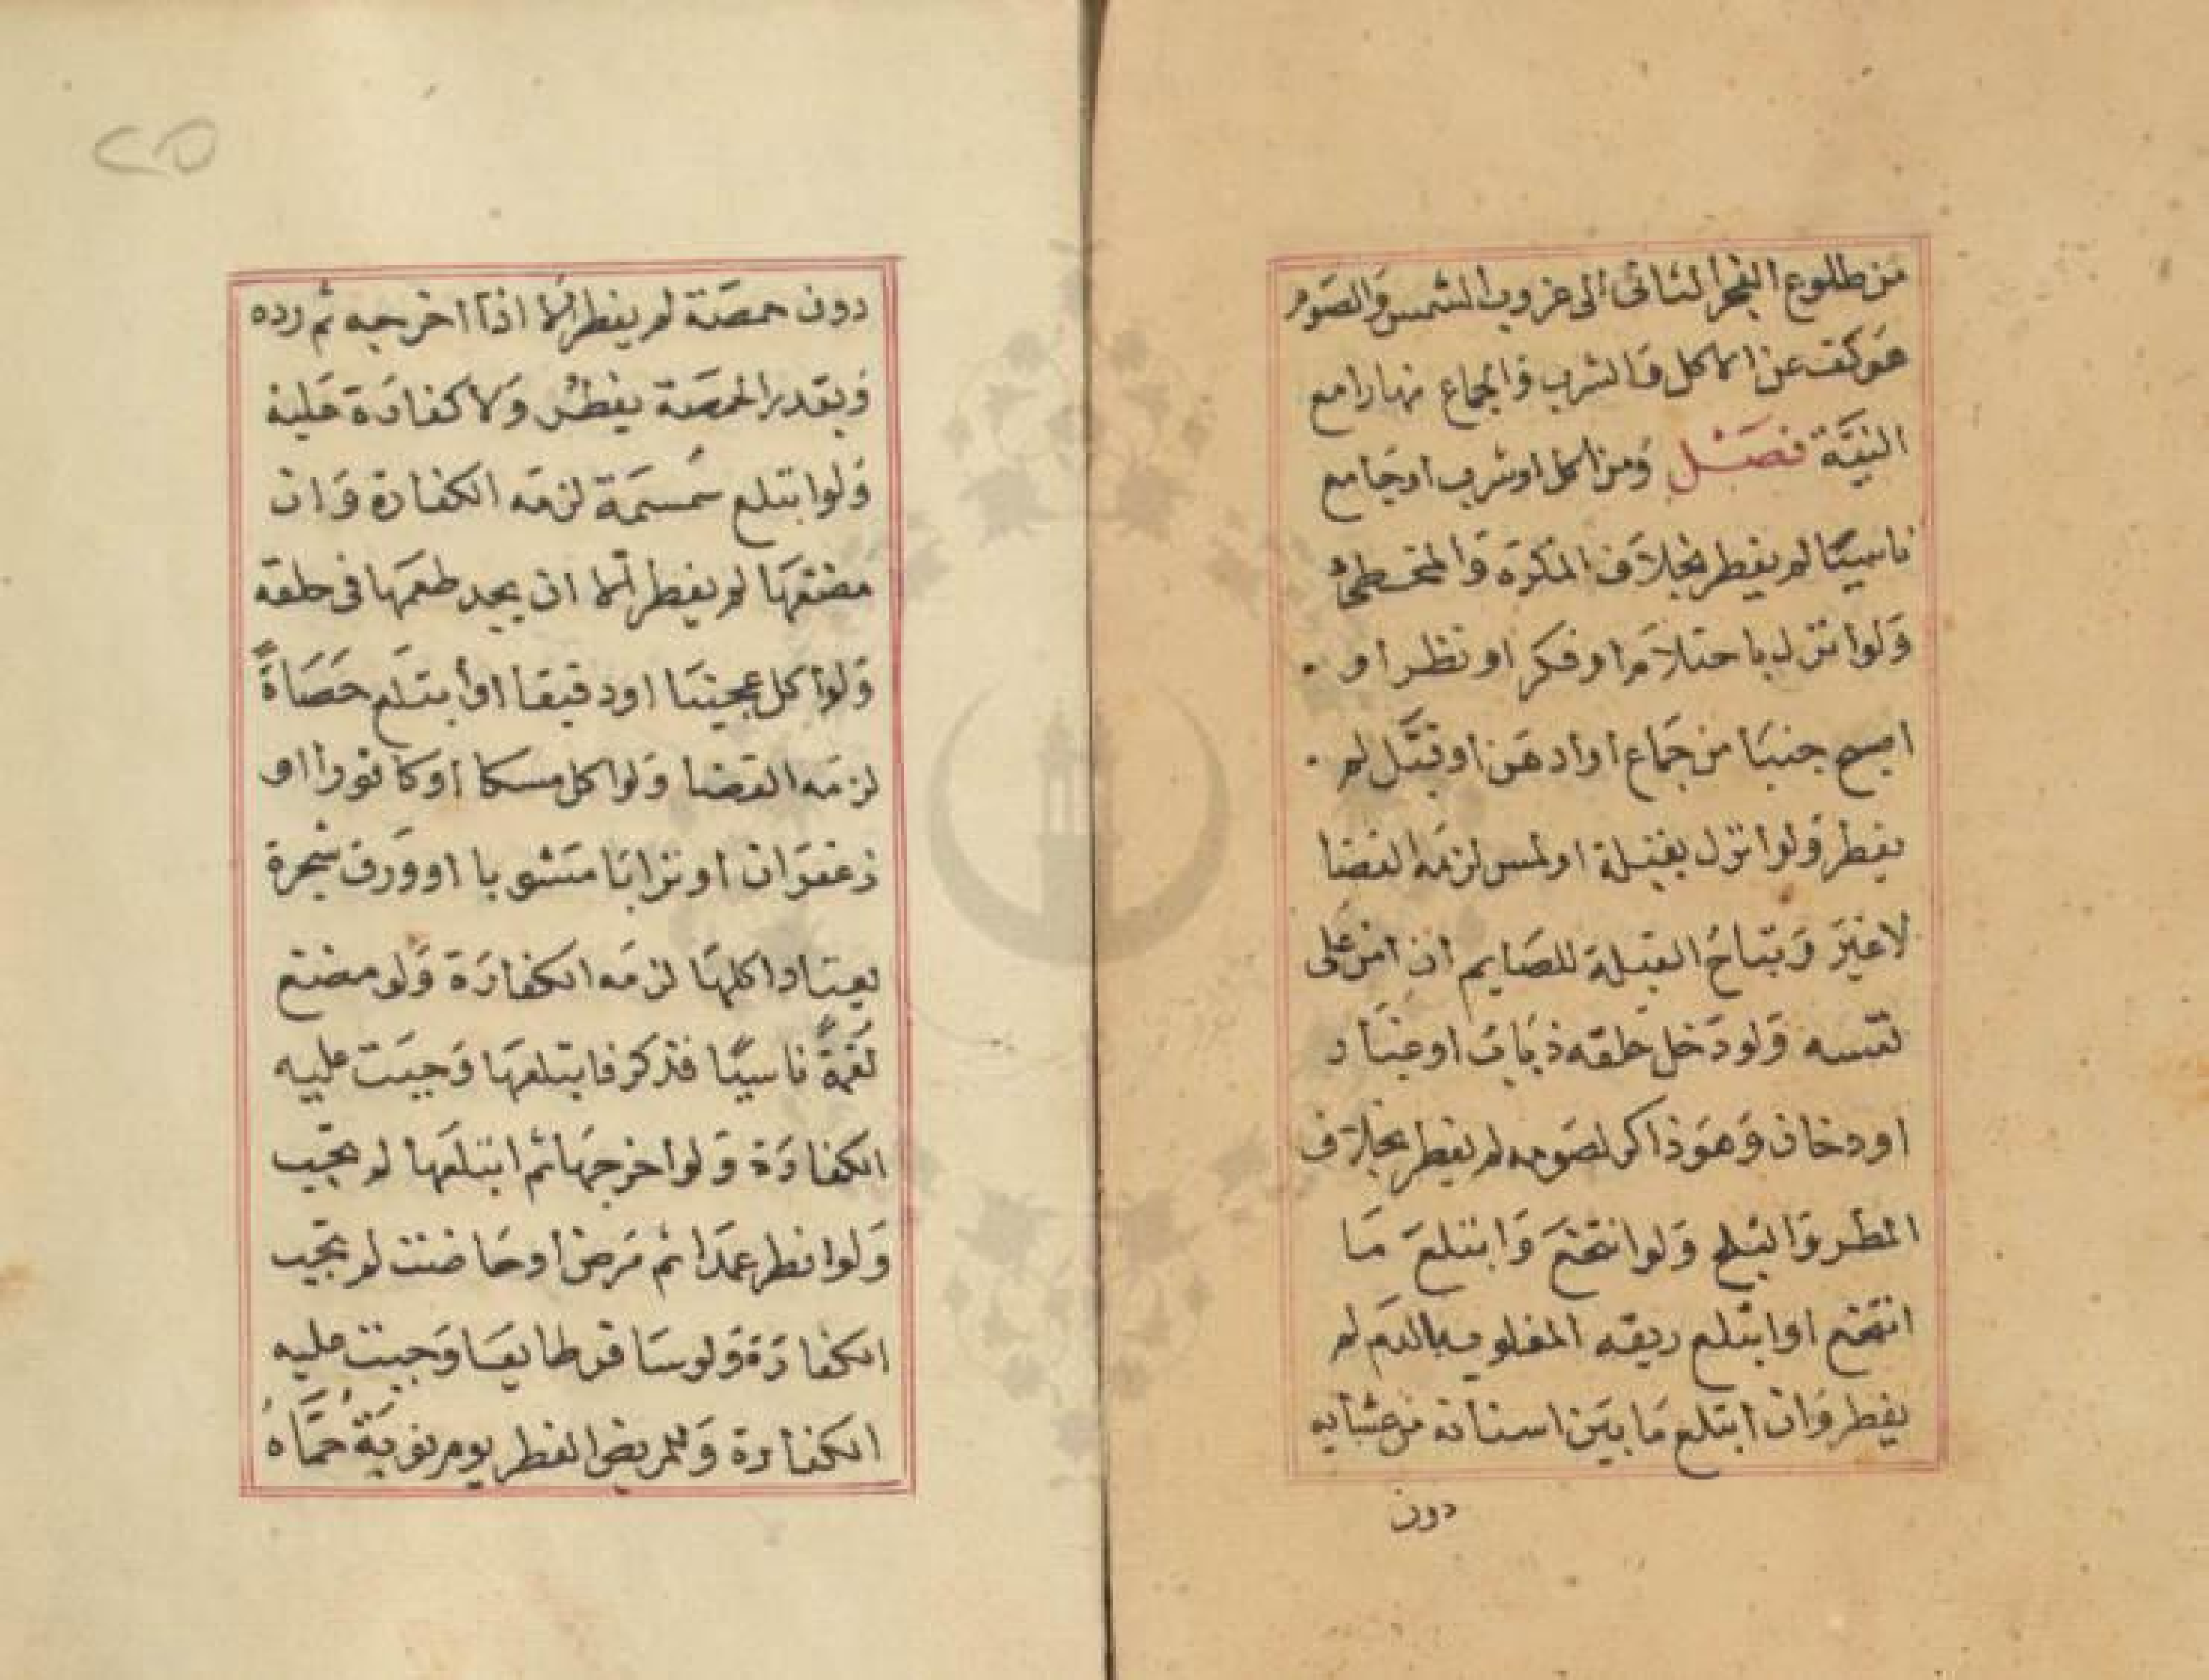 من طلوع الفجر الثانى الى غروب الشمس والصوم
هو كف عن الاكل والشرب والجماع نهارا مع
النيَّة فصل ومن اكل او شرب او جامع
ناسيًا لم يفطر بخلاف المكره والمخطئ
ولو انزل باحتلام او فكر او نظر او
اصبح جنبا من جماع او ادهن او قبَّل لم
يفطر ولو انزل بقبلة او لمس لزمه القضا
لا غير وتباح القبلة للصايم ان امن على
نفسه ولو دخل حلقه ذباب او غبار
او دخان وهو ذاكر لصومه لم يفطر بخلاف
المطر والثلج ولو انتخع وابتلع ما
انتخع او ابتلع ريقه المغلوب بالدم لم
يفطر وان ابتلع ما بين اسنانه من عشايه
دون
٢٥
دون حمصة لم يفطر الا اذا اخرجه ثم رده
وبقدر الحمصة يفطر ولا كفارة عليه
ولو ابتلع سمسمة لزمه الكفارة وان
مضغها لم يفطر الا ان يجد طعمها فى حلقه
ولو اكل عجينا او دقيقا او ابتلع حصاةً
لزمه القضا ولو اكل مسكا او كافورا او
زعفران او ترابا مشويا او ورق شجرة
يعتاد اكلها لزمه الكفارة ولو مضغ
لقمةً ناسيًا فذكر فابتلعها وجبت عليه
الكفارة ولو اخرجها ثم ابتلعها لم تجب
ولو افطر عمدا ثم مرض او حاضت لم تجب
الكفارة ولو سافر طايعا وجبت عليه
الكفارة وللمريض الفطر يوم نوبة حمَّاه